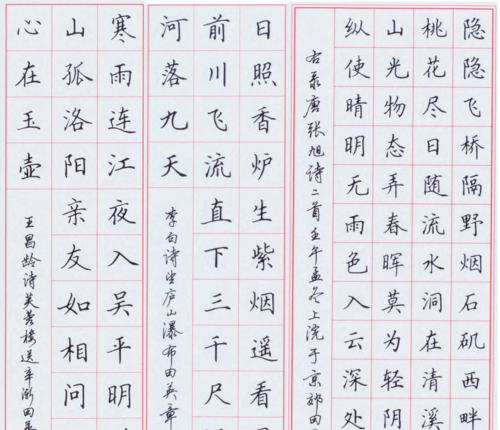 隐隐飞桥隔野烟石矶西畔
桃花尽日随流水洞在清溪
山光物态弄春晖莫为轻阴
纵使晴明无雨色入云深处
右录唐张旭诗二首壬午孟冬上浣于京郊田
日照香炉生紫烟遥看
前川飞流直下三千尺
河落九天
李白诗望庐山瀑布田英章
寒雨连江夜入吴平明
山孤洛阳亲友如相问
心在玉壶
王昌龄诗芙蓉楼送辛渐田英